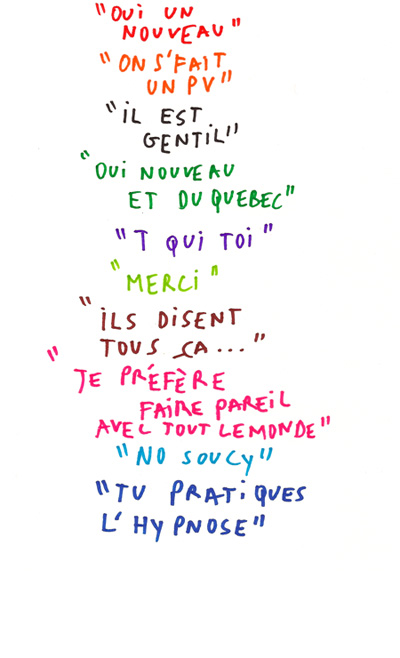 "OUi UN
NOUVEAU"
"ON S'FAiT
UN PV"
"iL EST
GENTiL"
"OUi NOUVEAU
ET DU QUEBEC"
"T QUi TOi"
"MERCi"
"iLS DiSENT
TOUS ÇA..."
"JE PRÉFÈRE
FAiRE PAREiL
AVEC TOUT LE MONDE"
"NO SOUCY"
"TU PRATiQUES
L'HYPNOSE"